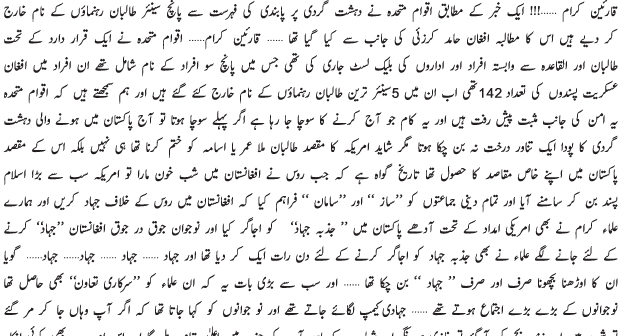 قارئین کرام ......!!! ایک خبر کے مطابق اقوام متحدہ نے دہشت گردی پر پابندی کی فہرست سے پانچ سینئر طالبان رہنماؤں کے نام خارج
کر دیے ہیں اس کا مطالبہ افغان حامد کرزئی کی جانب سے کیا گیا تھا ...... قارئین کرام...... اقوام متحدہ نے ایک قرار دارد کے تحت
طالبان اور القاعدہ سے وابستہ افراد اور اداروں کی بلیک لسٹ جاری کی تھی جس میں پانچ سو افراد کے نام شامل تھے ان افراد میں افغان
عسکریت پسندوں کی تعداد 142تھی اب ان میں 5سینئر ترین طالبان رہنماؤں کے نام خارج کئے گئے ہیں اور ہم سمجھتے ہیں کہ اقوام متحدہ
یہ امن کی جانب مثبت پیش رفت ہیں اور یہ کام جو آج کرنے کا سوچا جا رہا ہے اگر پہلے سوچا ہوتا تو آج پاکستان میں ہونے والی دہشت
گردی کا پودا ایک تناور درخت نہ بن چکا ہوتا مگر شاید امریکہ کا مقصد طالبان ملا عمر یا اسامہ کو ختم کرنا تھا ہی نہیں بلکہ اس کے مقصد
پاکستان میں اپنے خاص مقاصد کا حصول تھا تاریخ گواہ ہے کہ جب روس نے افغانستان میں شب خون مارا تو امریکہ سب سے بڑا اسلام
پسند بن کر سامنے آیا اور تمام دینی جماعتوں کو ’’ساز ‘‘ اور ’’سامان ‘‘ فراہم کیا کہ افغانستان میں روس کے خلاف جہاد کریں اور ہمارے
علماء کرام نے بھی امریکی امداد کے تحت آدھے پاکستان میں ’’ جذبہ جہاد‘‘ کو اجاگر کیا اور نوجوان جوق در جوق افغانستان ’’جہاد‘‘ کرنے
کے لئے جانے لگے علماء نے بھی جذبہ جہاد کو اجاگر کرنے کے لئے دن رات ایک کر دیا تھا اور جہاد ...... جہاد ...... جہاد...... جہاد...... گویا
ان کا اوڑھنا بچھونا صرف اور صرف ’’ جہاد ‘‘ بن چکا تھا ...... اور سب سے بڑی بات یہ کہ ان علماء کو ’’سرکاری تعاون‘‘ بھی حاصل تھا
نوجوانوں کے بڑے بڑے اجتماع ہوتے تھے ...... جہادی کیمپ لگائے جاتے تھے اور نو جوانوں کو کہا جاتا تھا کہ اگر آپ وہاں جا کر مر گئے